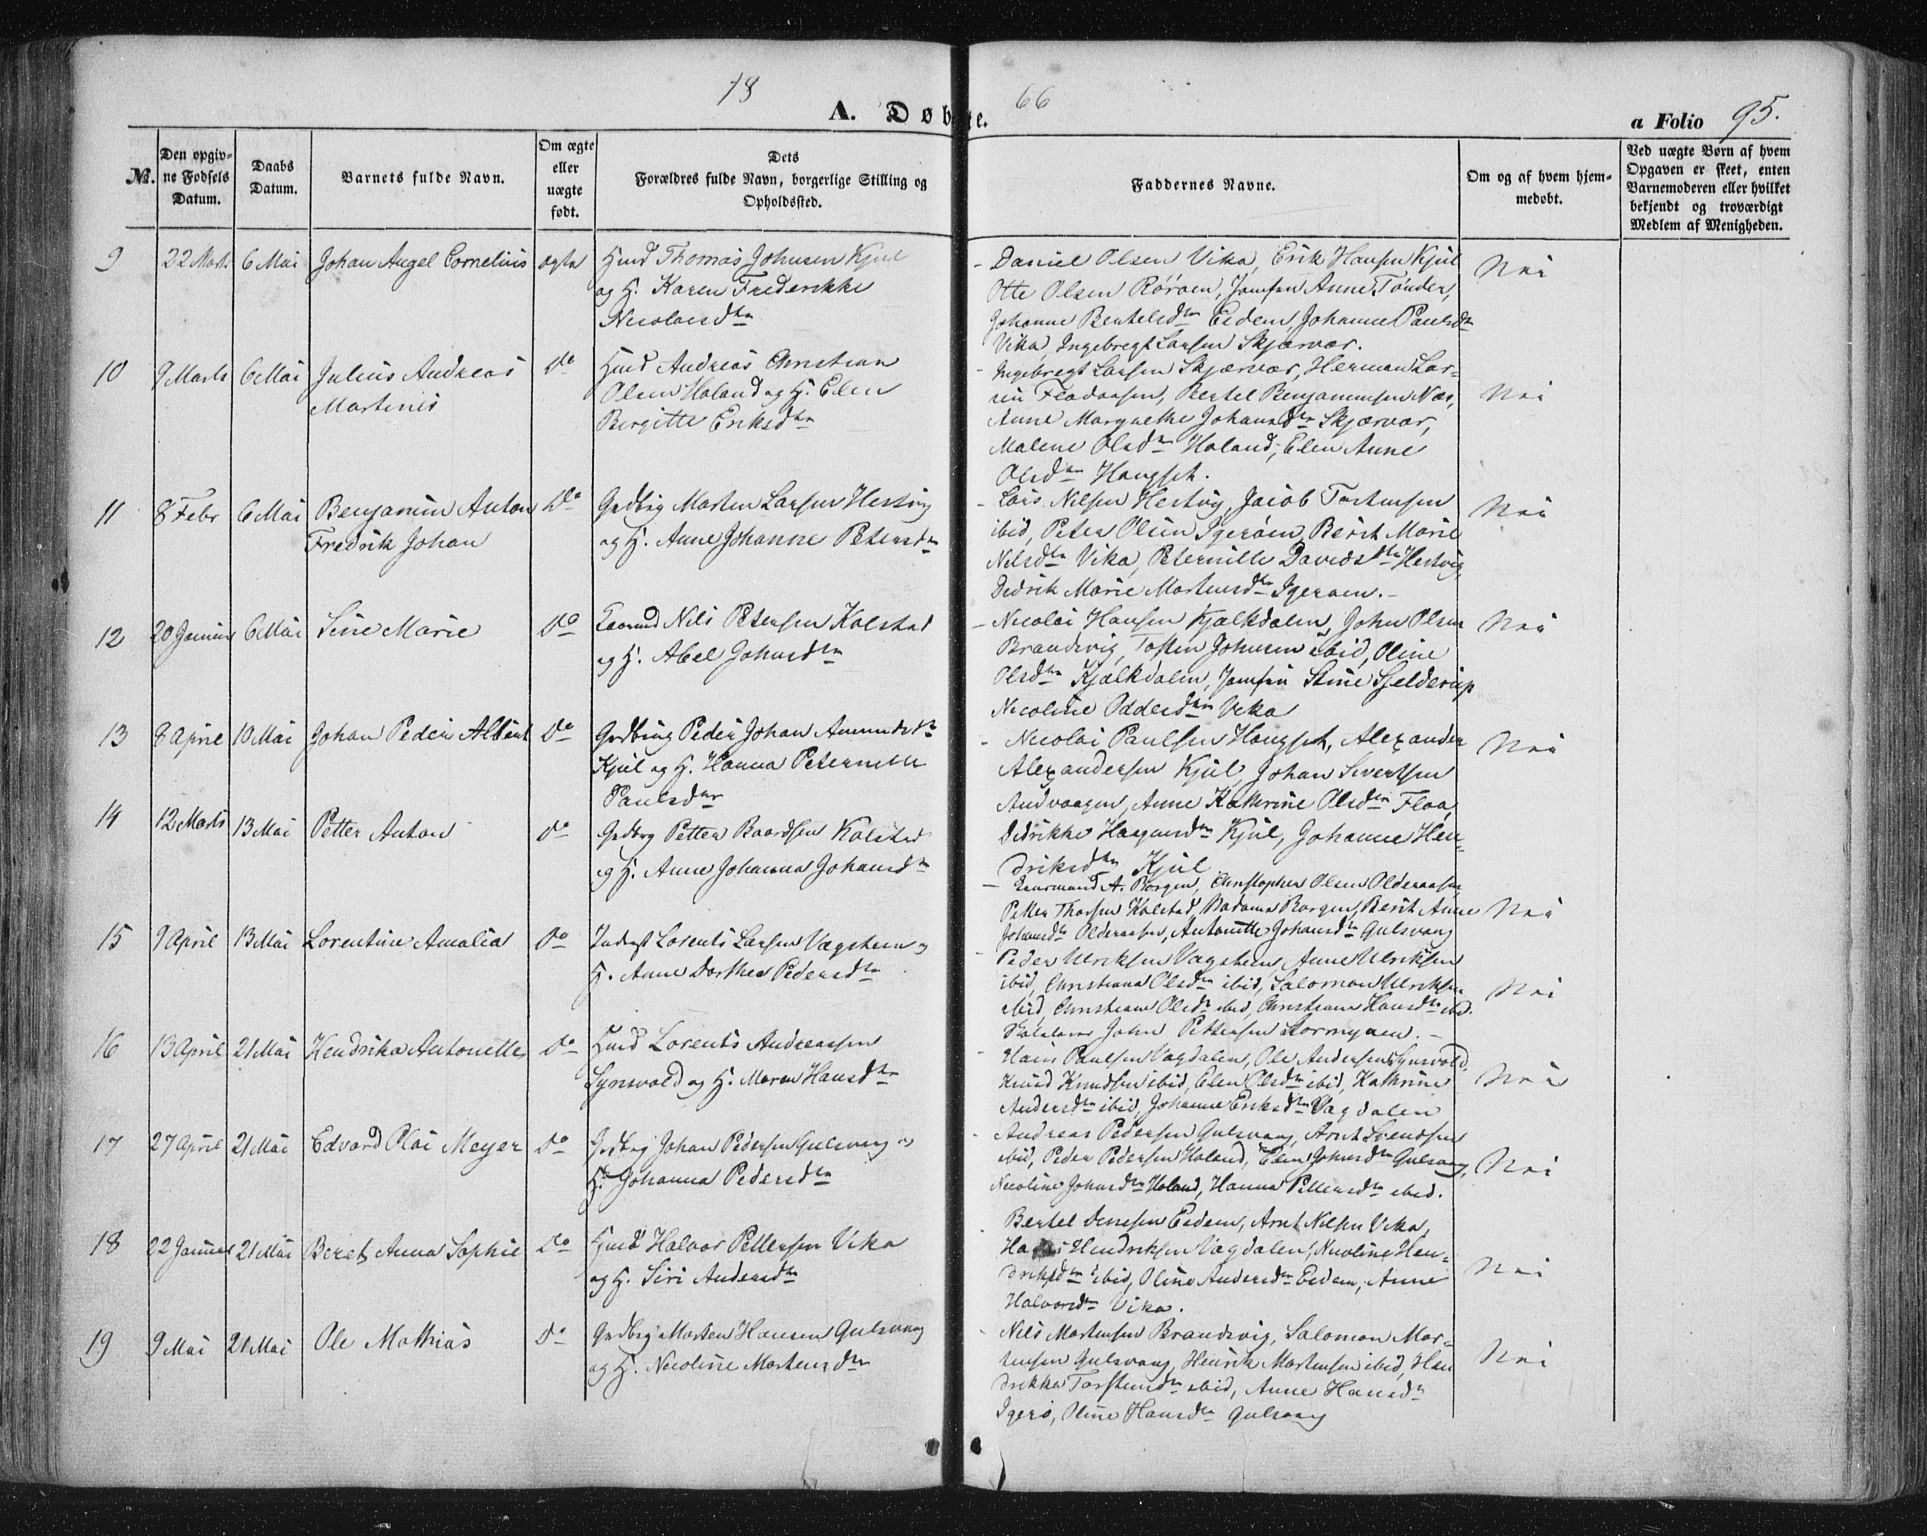 18 66
A. Døbte.
a Folio 95.
No.
Den opgiv-
ne Fødsels
Datum.
Daabs
Datum.
Barnets fulde Navn.
Om ægte
eller
uægte
født.
Dets
Forældres fulde Navn, borgerlige Stilling og
Opholdssted.
Faddernes Navne.
Om og af hvem hjem-
medøbt.
Ved uægte Børn af hvem
Opgaven er skeet, enten
Barnemoderen eller hvilket
bekjendt og troværdigt
Medlem af Menigheden.
9 22 Mart. 6 Mai Johan Angel Cornelius ægte Huusd Thomas Johnsen Kjul
og H. Karen Frederikke
Nicolaisdtr
Daniel Olsen Vika, Erik Hansen Kjul
Otte Olsen Rørøen, Jomfru Anne Tønder,
Johanne Bertelsdtr Eidem, Johanne Paulsdtr
Vika, Ingebregt Larsen Skjærvær.
Nei
10 9 Marts 6 Mai Julius Andreas
Martinis
Do
Andreas Christian
Olsen Holand og H. Elen
Birgitte Eriksdtr
Ingebregt Larsen Skjærvær, Herman Lar-
sen Floadaasen, Bertel Benjaminsen Næs,
Anne Margrethe Johansdtr Skjærvær,
Malene Olsdtr Holand, Elen Anne
Olsdtr Hongset.
Nei
11 8 Febr 6 Mai Benjamin Anton
Fredrik Johan
Do
Grdbrg Morten Larsen Hestvig
og H. Anne Johanne Petersdtr
Lars Nilsen Hestvig, Jacob Torstensen
ibid, Peter Olsen Igerøen, Berit Marie
Nilsdtr Vika, Peternille Davidsdtr Hestvig,
Didrik Marie Mortensdtr Igerøen.
Nei
12 20 Januar 6 Mai Sine Marie Do
Nils Petersen Kolstad
og H. Abel Johnsdtr
Nicolai Hansen Kjælkdalen, John Olsen
Brandsvig, Tosten Johnsen ibid, Oline
Olsdtr Kjælkdalen, Jomfru Stine Sjelderup
Nicoline Oddersdtr Vika
Nei
13 8 April 10 Mai Johan Peder Albert Do
Grdbrug Peder Johan Amundsen
Kjul og H. Hanna Peternelle
Paulsdtr
Nicolai Paulsen Hongset, Alexander
Alexandersen Kjul, Johan Sivertsen
Andvaagen, Anne Kathrine Olsdtr Floa,
Didrikke Haagensdtr Kjul, Johanne Hen-
driksdtr Kjul
Nei
14 12 Marts 13 Mai Petter Anton Do
Grdbrg Petter Baardsen Kolstad
og H. Anne Johanna Johansdtr
Lensmand A. Borgen, Christopher Olsen Olderaasen,
Petter Thorsen Kolstad, Madame Borgen, Berit Anne
Johansdtr Olderaasen, Antonette Johansdtr Gulsvaag
Nei
15 9 April 13 Mai Lorentine Amalia Do
Inderst Lorents Larsen Vægsteen og
H. Anne Dorthea Pedersdtr
Peder Ulriksen Vægsteen, Anne Ulriksen
ibid, Christiana Olsdtr ibid, Salomon Ulriksen
ibid, Christiane Olsdtr ibid, Christiane Hansdtr ibd.
John Pettersen Stormyaen.
Nei
16 13 April 21 Mai Hendrika Antonette Do
Huusd Lorents Andreassen
Synsvold og H. Maren Hansdtr
Hans Paulsen Vægdalen, Ole Andersen Synsvold,
Knud Knudsen ibid, Elen Olsdtr ibid, Kathrine
Andersdtr ibid, Johanne Eriksdtr Vægdalen
Nei
17 27 April 21 Mai Edvard Olai Meyer Do
Grdbrg Johan Pedersen Gulsvaag og
H. Johanna Pedersdtr
Andreas Pedersen Gulsvaag, Arnt Svendsen
ibid, Peder Pedersen Holand, Elen Johnsdtr Gulsvaag,
Nicoline Johnsdtr Holand, Hanna Pettersdtr ibid.
Nei
18 22 Januar 21 Mai Beret Anna Sophie Do
Huusd Halvor Pettersen Vika
og H. Siri Andersdtr
Bertel Dinesen Eidem, Arnt Nilsen Vika,
Hans Hendriksen Vægdalen, Nicoline Hen-
driksdtr ibid, Oline Andersdtr Eidem, Anne
Halvorsdtr Vika.
Nei
19 9 Mai 21 Mai Ole Mathias Do
Grdbrg Morten Hansen Gulsvaag
og H. Nicoline Mortensdtr
Nils Mortensen Brandsvig, Salomon Mor-
tensen Gulsvaag, Henrik Mortensen ibid, Hen
drikka Torstensdtr ibid, Anne Hansdtr
Igerø, Oline Hansdtr Gulsvaag
Nei